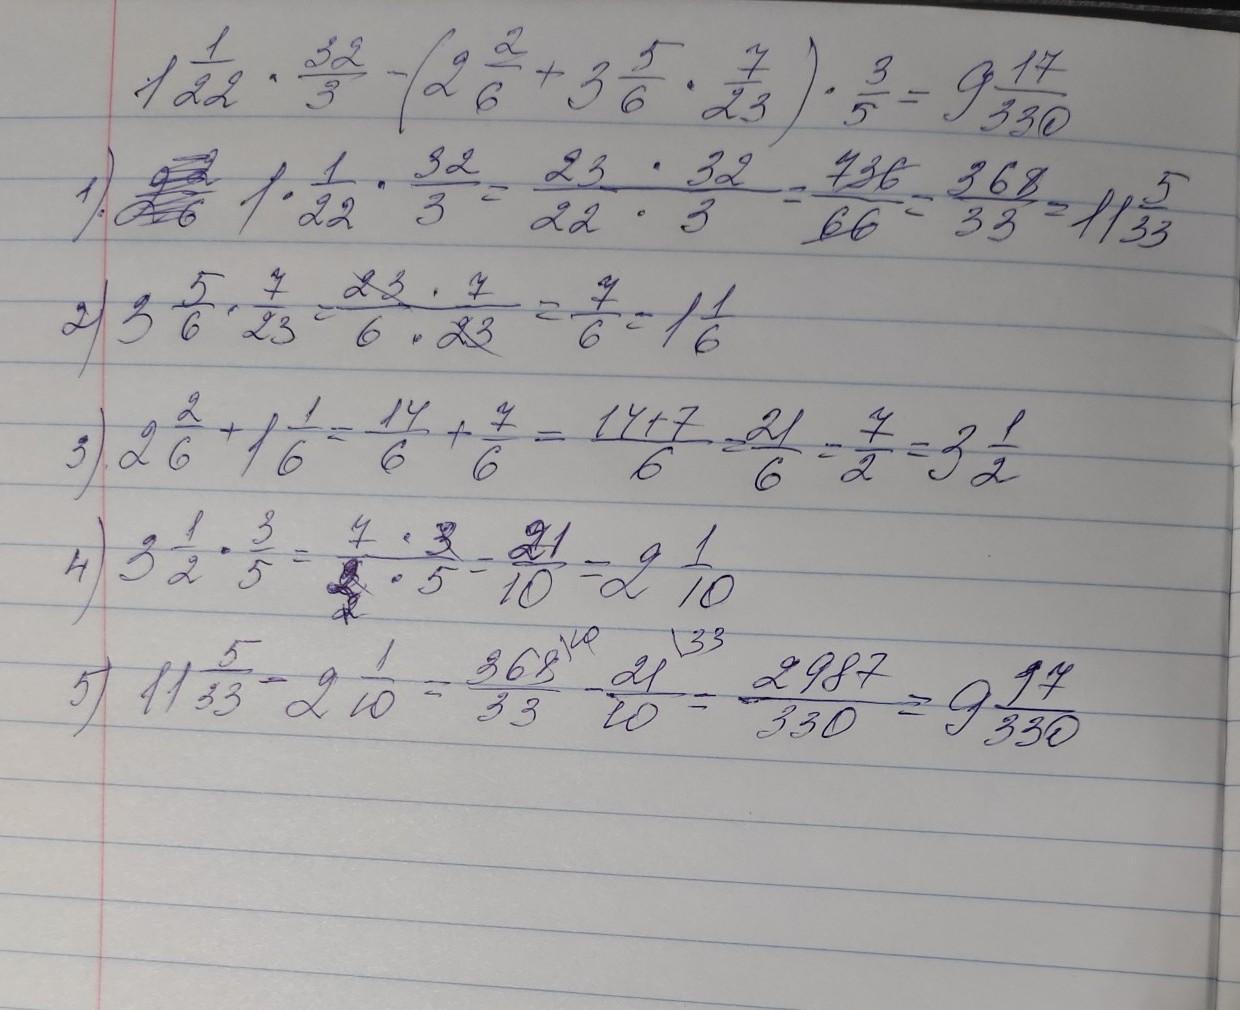 1 1/22 · 32/3 - (2 2/6 + 3 5/6 · 7/23) · 3/5 = 9 17/330
1). 1 · 1/22 · 32/3 = 23 · 32 / 22 · 3 = 736/66 = 368/33 = 11 5/33
2) 3 5/6 · 7/23 = 23 · 7 / 6 · 23 = 7/6 = 1 1/6
3). 2 2/6 + 1 1/6 = 14/6 + 7/6 = 14+7/6 = 21/6 = 7/2 = 3 1/2
4) 3 1/2 · 3/5 = 7 · 3 / 2 · 5 = 21/10 = 2 1/10
5) 11 5/33 - 2 1/10 = 368/33 \10 - 21/10 \33 = 2987/330 = 9 17/330